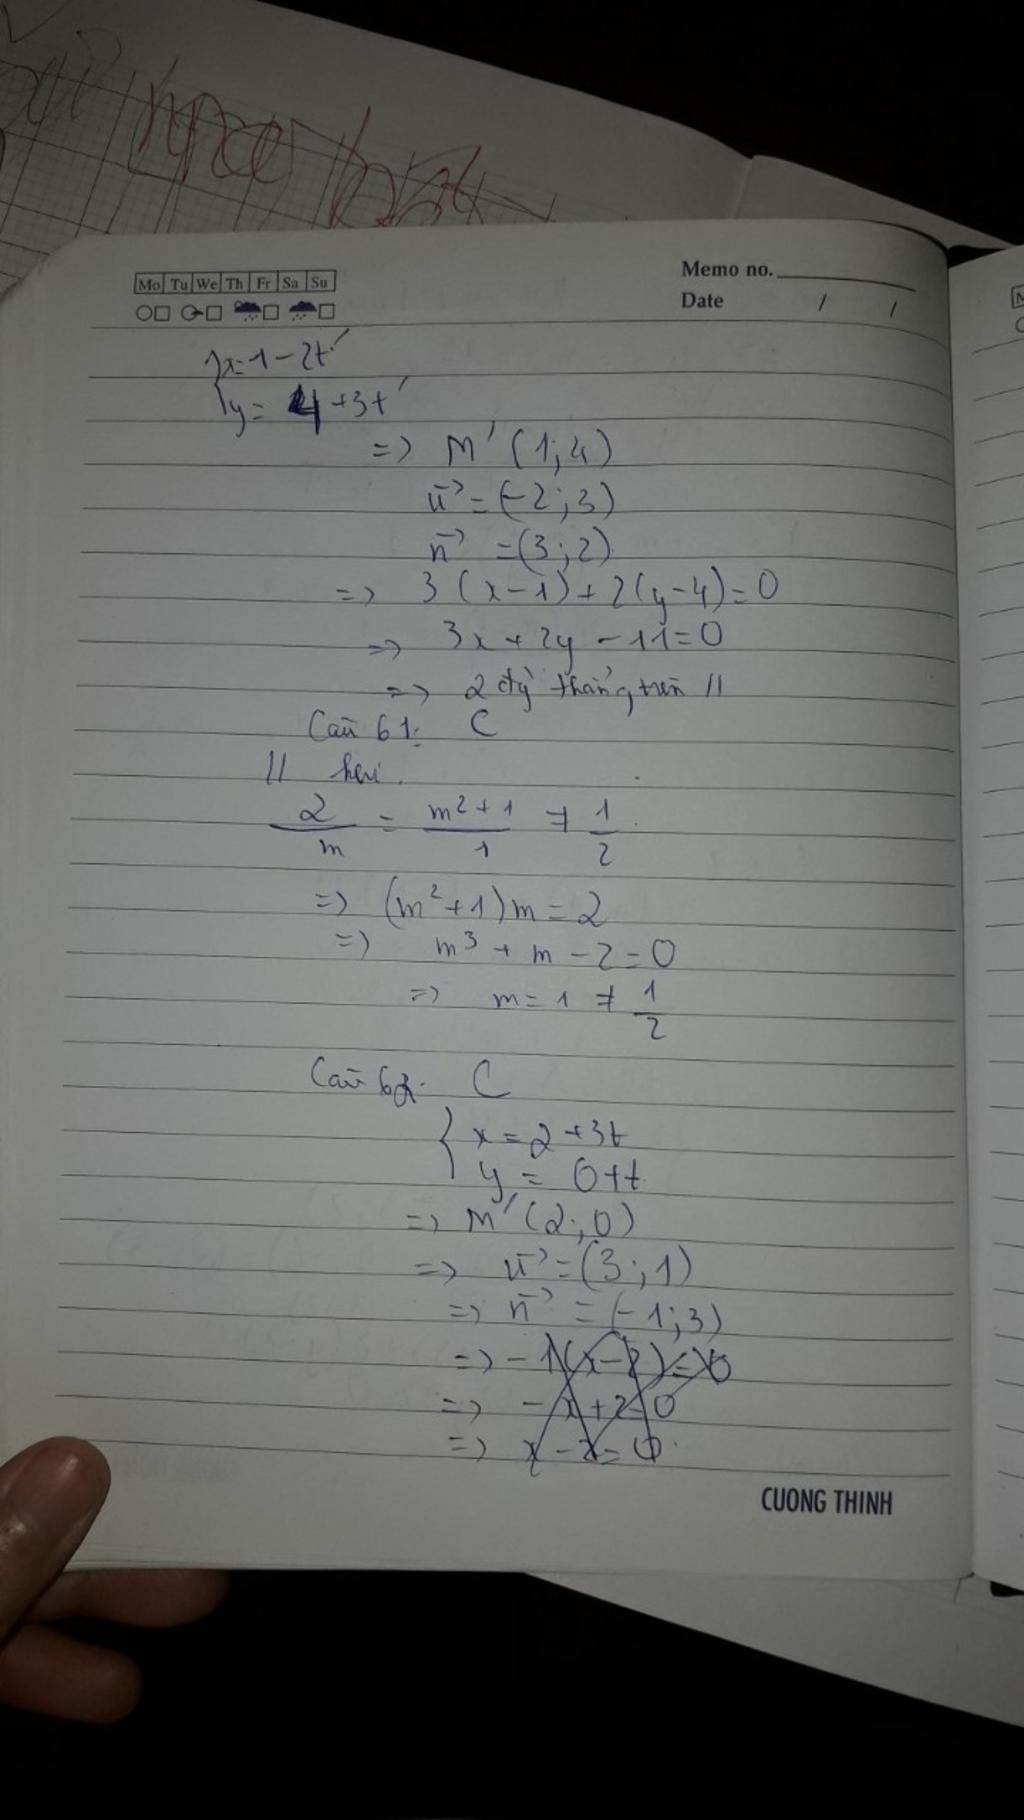 Mo Tu We Th Fr Sa Su
Memo no.
Date / /
{ x = 1 - 2t'
y = 4 + 3t'
=> M' (1; 4)
u→ = (-2; 3)
n→ = (3; 2)
=> 3(x-1) + 2(y-4) = 0
=> 3x + 2y - 11 = 0
=> 2 đg thẳng trên //
Câu 61: C
// khi
2/m = m²+1/1 ≠ 1/2
=> (m²+1)m = 2
=> m³ + m - 2 = 0
=> m = 1 ≠ 1/2
Câu 62: C
{ x = 2 + 3t
y = 0 + t
=> M' (2; 0)
=> u→ = (3; 1)
=> n→ = (-1; 3)
=> -1(x-2) = 0
=> -x + 2 = 0
=> x - 2 = 0
CUONG THINH